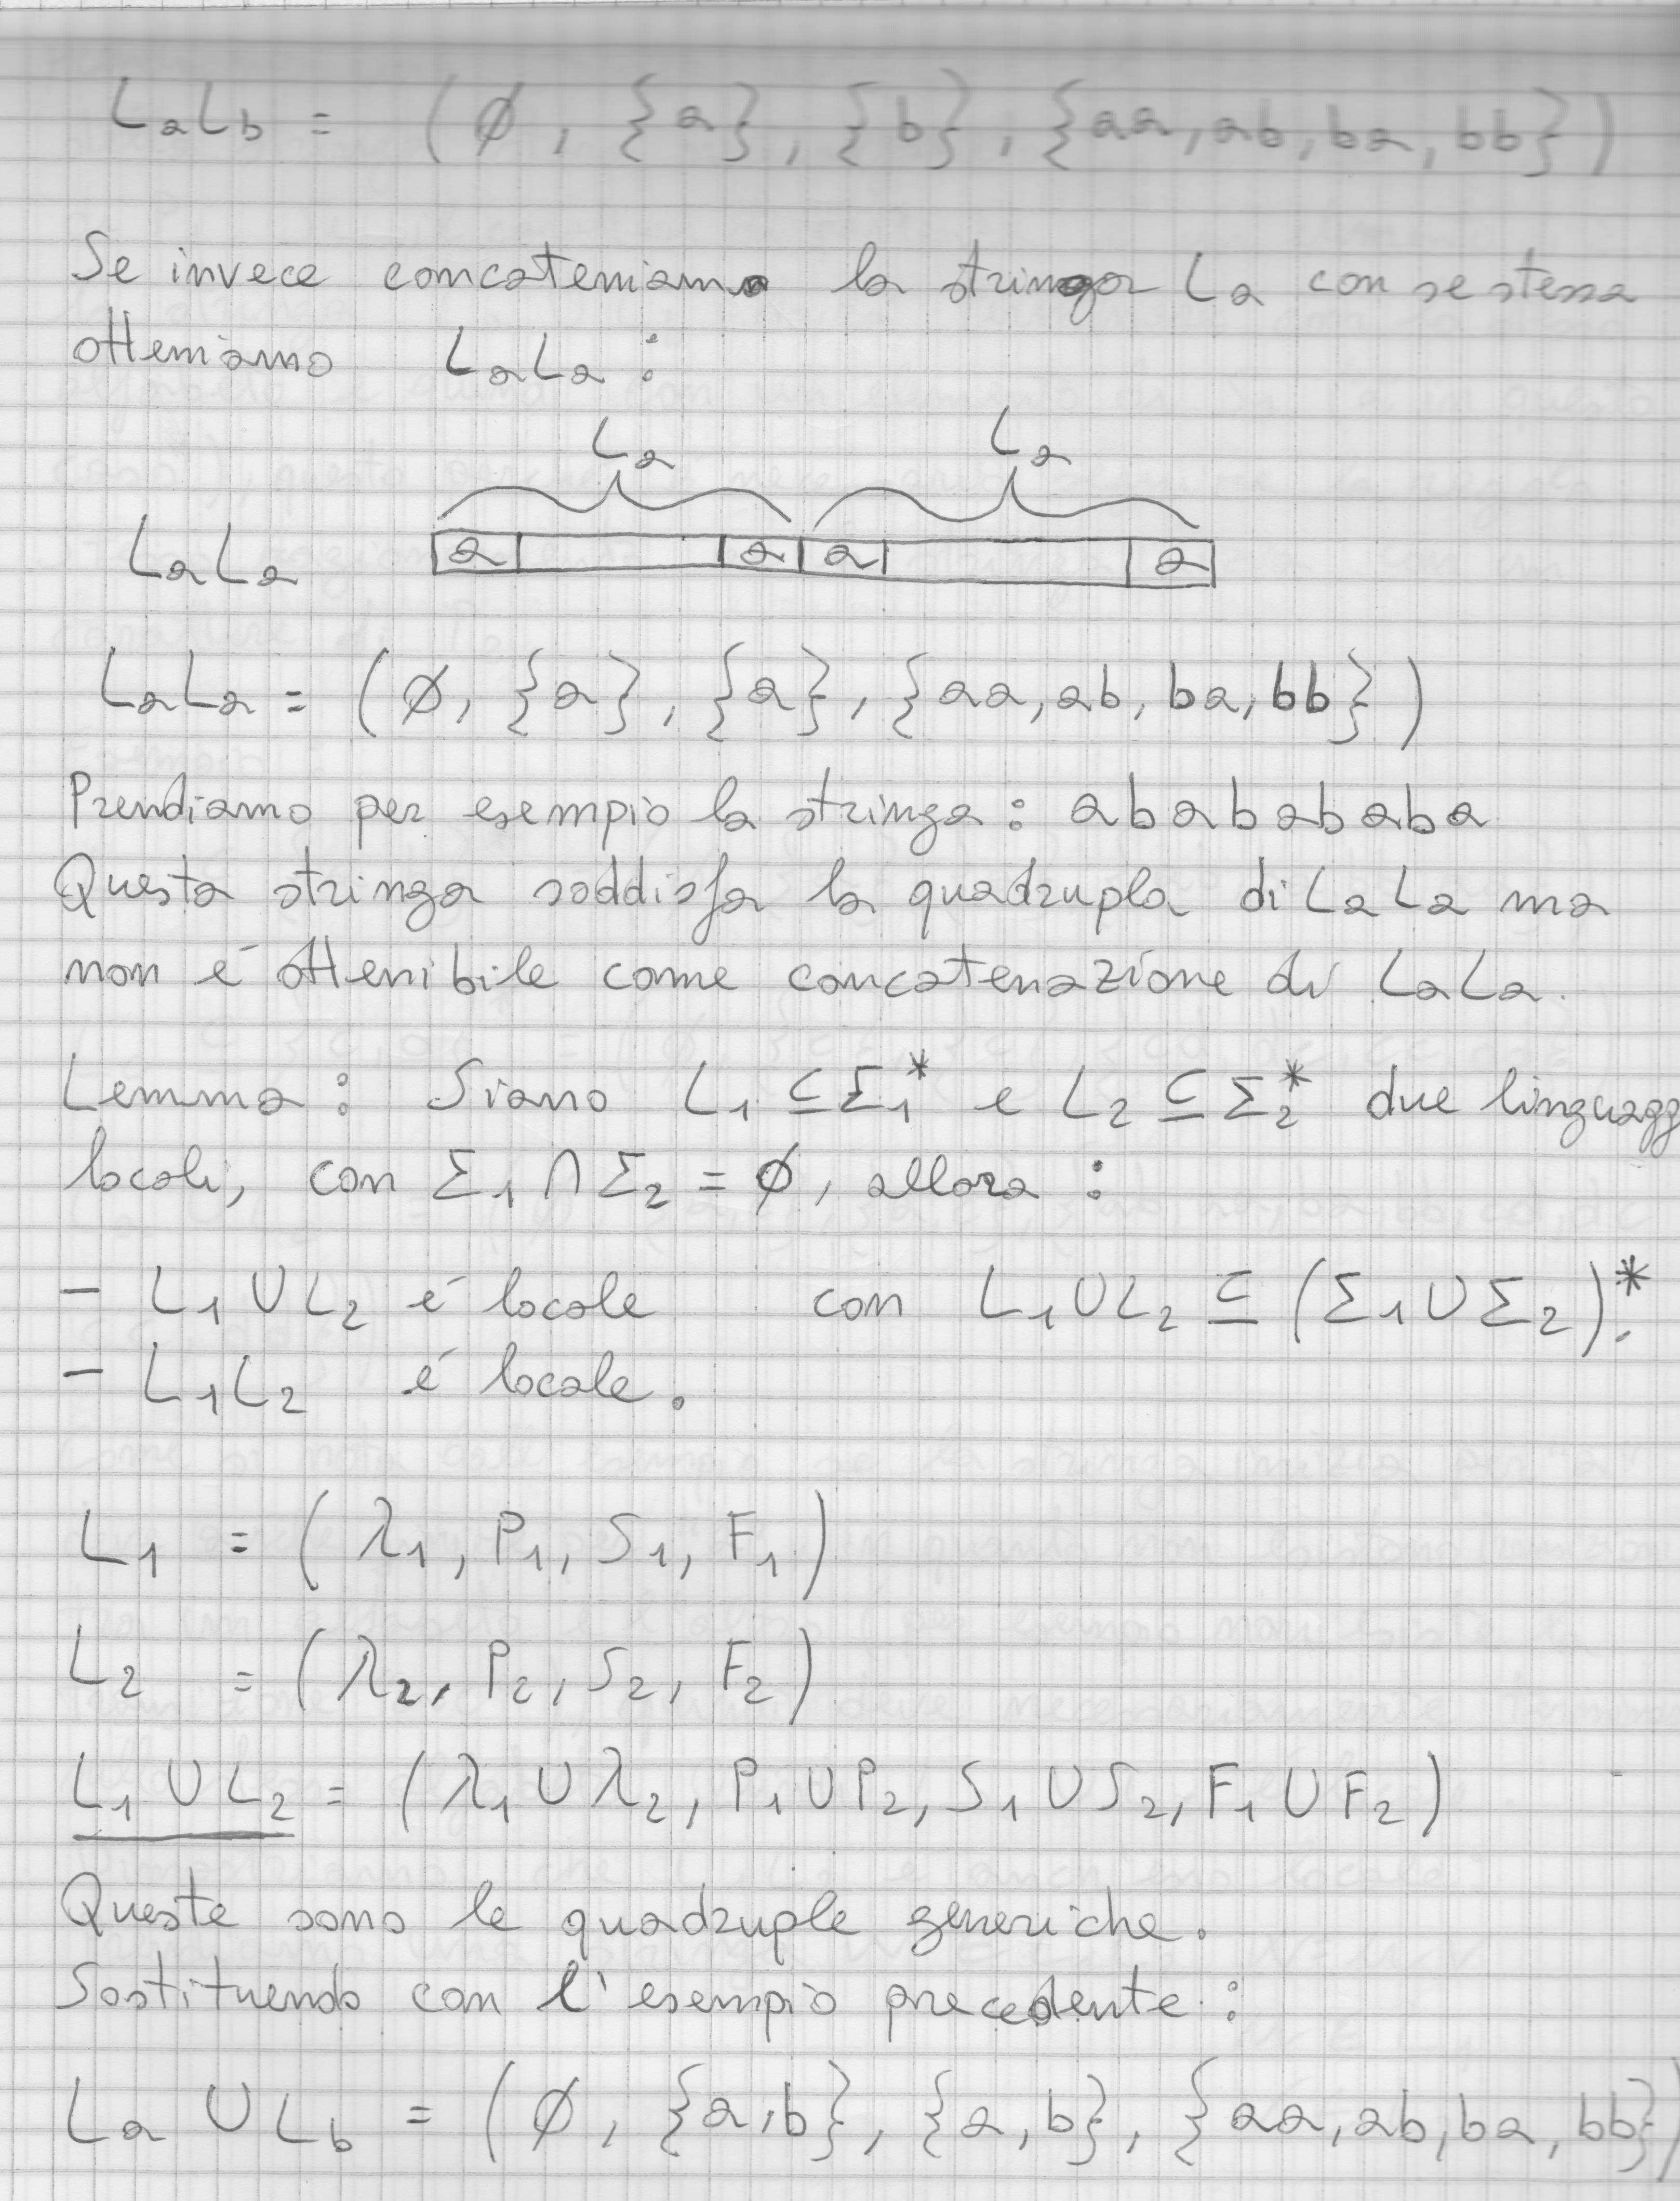 LaLb = (∅, {a}, {b}, {aa, ab, ba, bb})
Se invece concateniamo la stringa La con se stessa
otteniamo LaLa :
La La
LaLa a a a a
LaLa = (∅, {a}, {a}, {aa, ab, ba, bb})
Prendiamo per esempio la stringa : ababababa
Questa stringa soddisfa la quadrupla di LaLa ma
non é ottenibile come concatenazione di LaLa.
Lemma : Siano L₁ ⊆ Σ₁* e L₂ ⊆ Σ₂* due linguagg
locali, con Σ₁ ∩ Σ₂ = ∅, allora :
- L₁ ∪ L₂ é locale con L₁ ∪ L₂ ⊆ (Σ₁ ∪ Σ₂)*.
- L₁L₂ é locale.
L₁ = (λ₁, P₁, S₁, F₁)
L₂ = (λ₂, P₂, S₂, F₂)
L₁ ∪ L₂ = (λ₁ ∪ λ₂, P₁ ∪ P₂, S₁ ∪ S₂, F₁ ∪ F₂)
Queste sono le quadruple generiche.
Sostituendo con l'esempio precedente :
La ∪ Lb = (∅, {a,b}, {a,b}, {aa, ab, ba, bb})